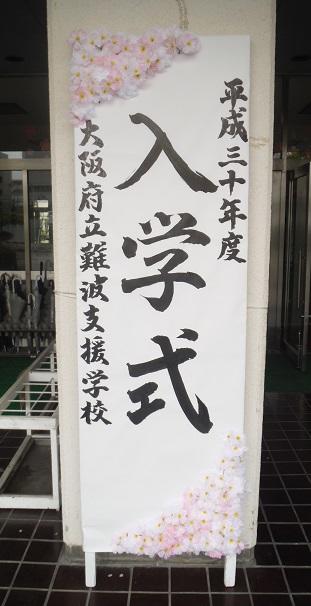 平成三十年度
入学式
大阪府立難波支援学校